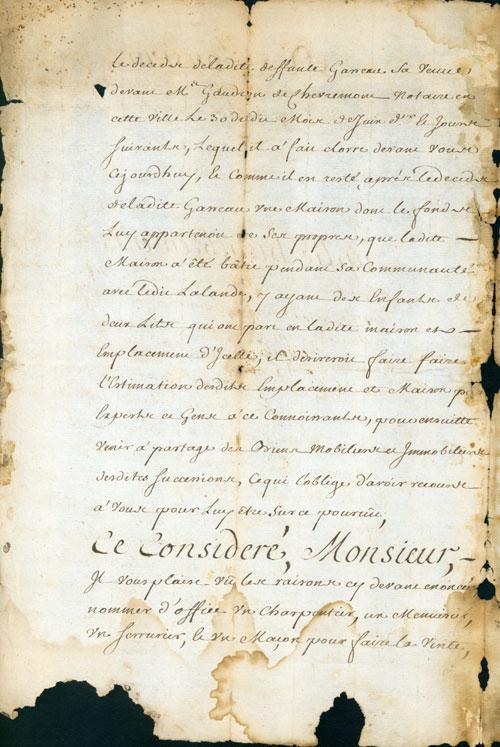 le decedes de ladite deffunte Gareau Sa veuve,
devant Me. Gaudron de Chevremont Notaire en
cette ville Le 30 dudit Mois de Juin d.er & Jours
suivants, Lequel il a fait clorre devant Vous
Cejourdhuy, & Comme il en reste, aprés Le decedes
de ladite Gareau une Maison dont le fonds
Luy appartenoit de Ses propres, que ladite —
Maison a été bâtie pendant sa Communauté
avec ledit Lalande, y ayant des Enfants de
deux Lits qui ont part en ladite maison et —
Emplacement d'Icelle; il désireroit faire faire
l'Estimation desdits Emplacement et Maison p
Experts et Gens à ce Connoissants, pour ensuitte
venir à partage des Biens Mobiliers et Immobiliers
desdites successions, Ce qui l'oblige d'avoir recours
à Vous pour Luy être Sur ce pourvû;
Ce Consideré, Monsieur, —
Il vous plaise vû les raisons cy devant enoncées
nommer d'office Un Charpentier, un Menuisier,
Un Serrurier, & Un Maçon pour faire la Visite,